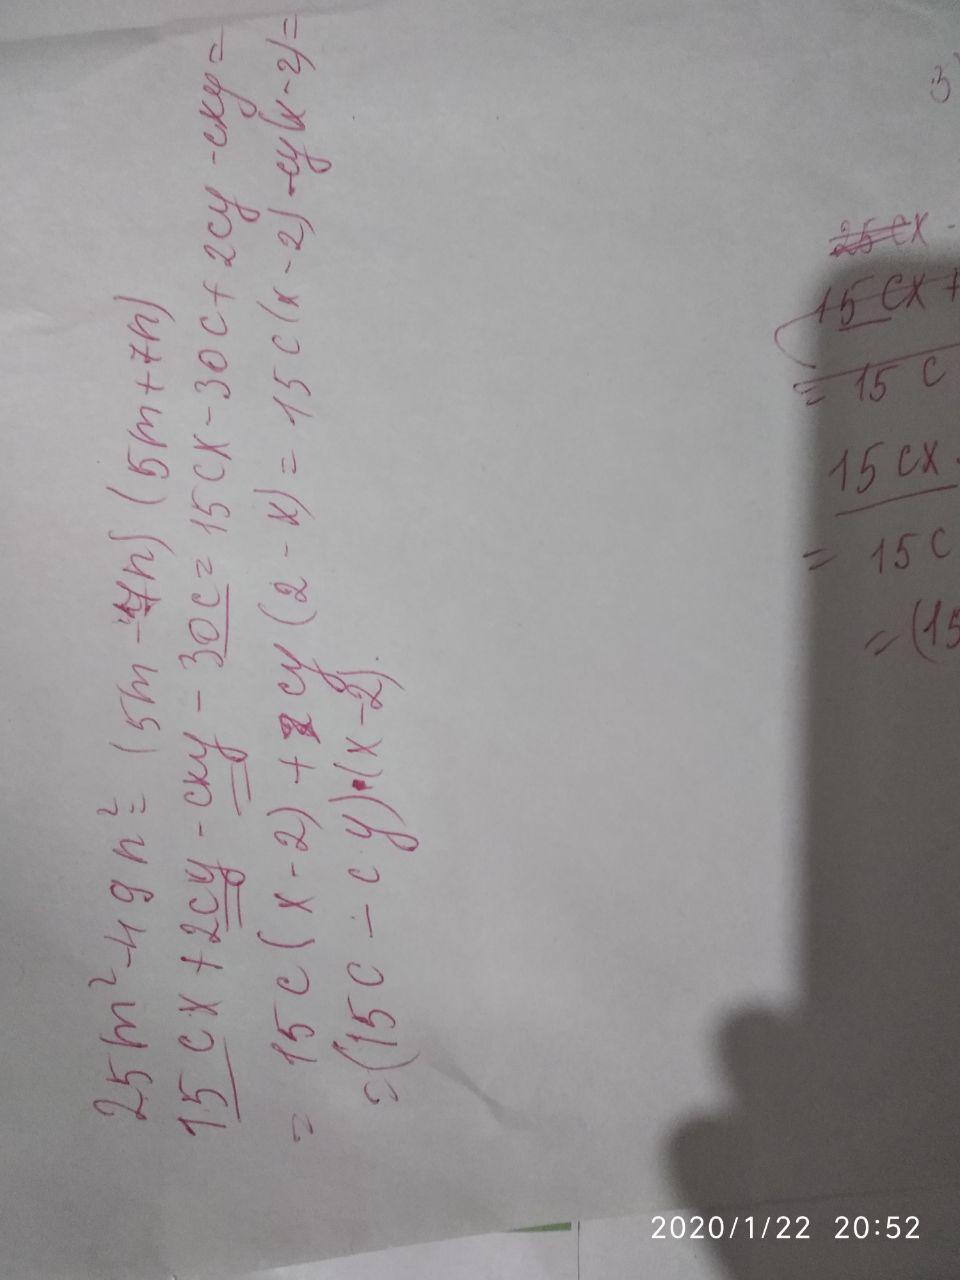 25m² - 49n² = (5m - 7n) (5m + 7n)
15cx + 2cy - cxy - 30c = 15cx - 30c + 2cy - cxy =
= 15c(x - 2) + cy(2 - x) = 15c(x - 2) - cy(x - 2) =
= (15c - cy)·(x - 2).
3
25cx -
15cx +
= 15c
15cx
= 15c
= (15
2020/1/22 20:52